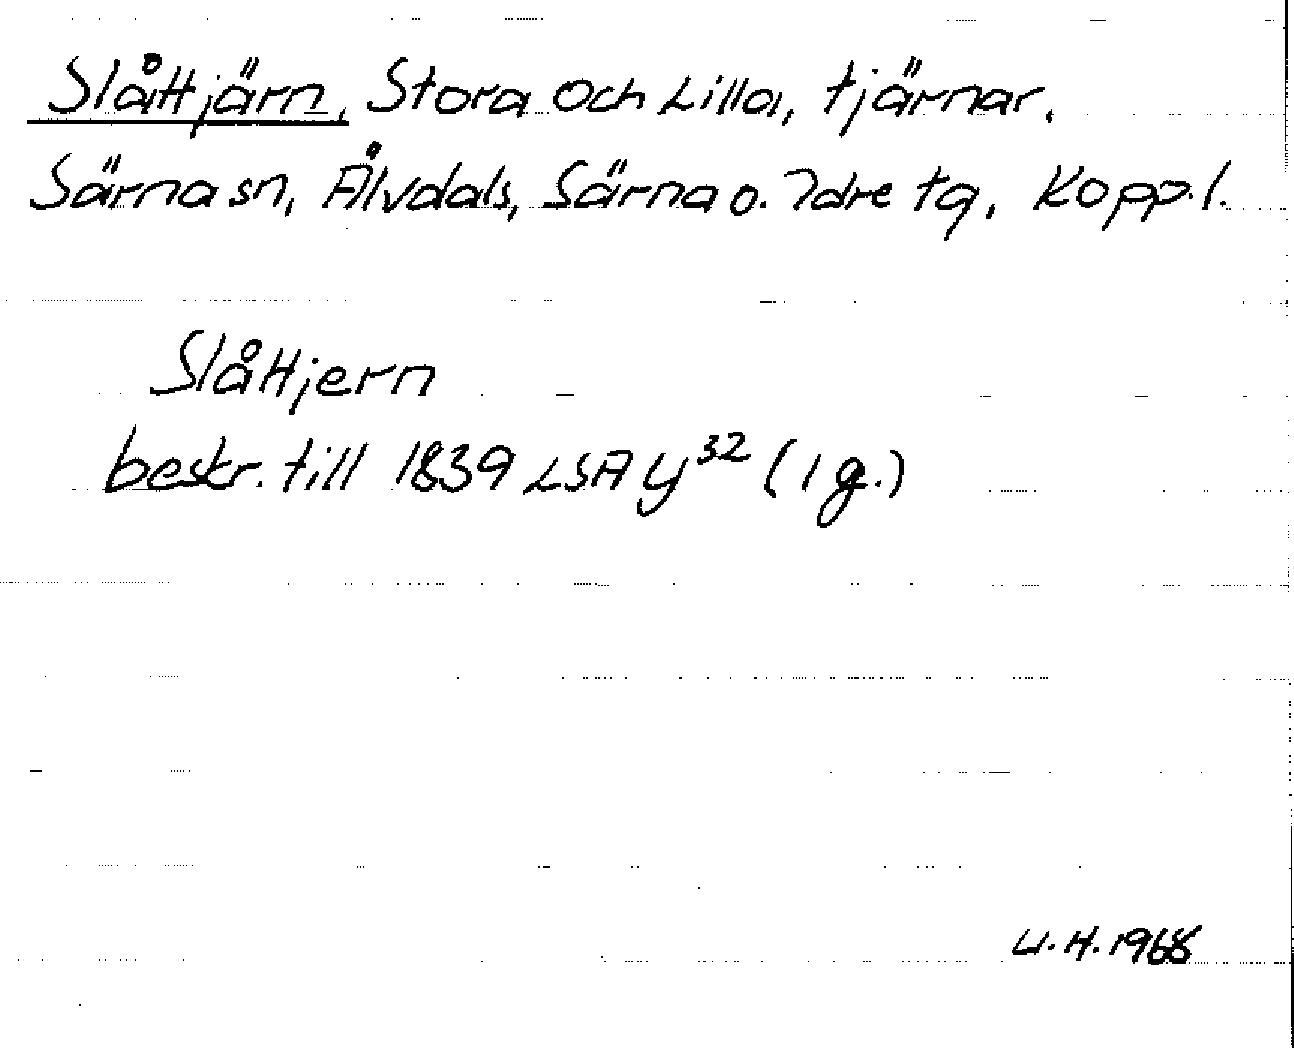 Slåttjärn, Stora och Lilla, tjärnar.
Särna sn, Älvdals, Särna o. Idre tg, Kopp.l.
Slåttjern
beskr. till 1839 LSA Y³² (1 g.)
U.H. 1968